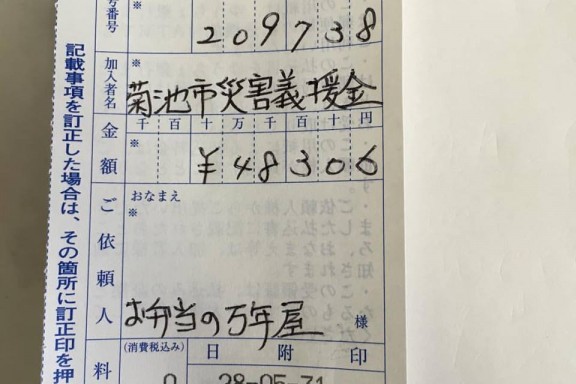 番号
209738
加入者名
※
菊池市災害義援金
金額
千百十万千百十円
※
¥48306
ご依頼人
おなまえ
※
お弁当の万年屋
様
料
(消費税込み)
日附印
0
28-05-31
記載事項を訂正した場合は、その箇所に訂正印を押